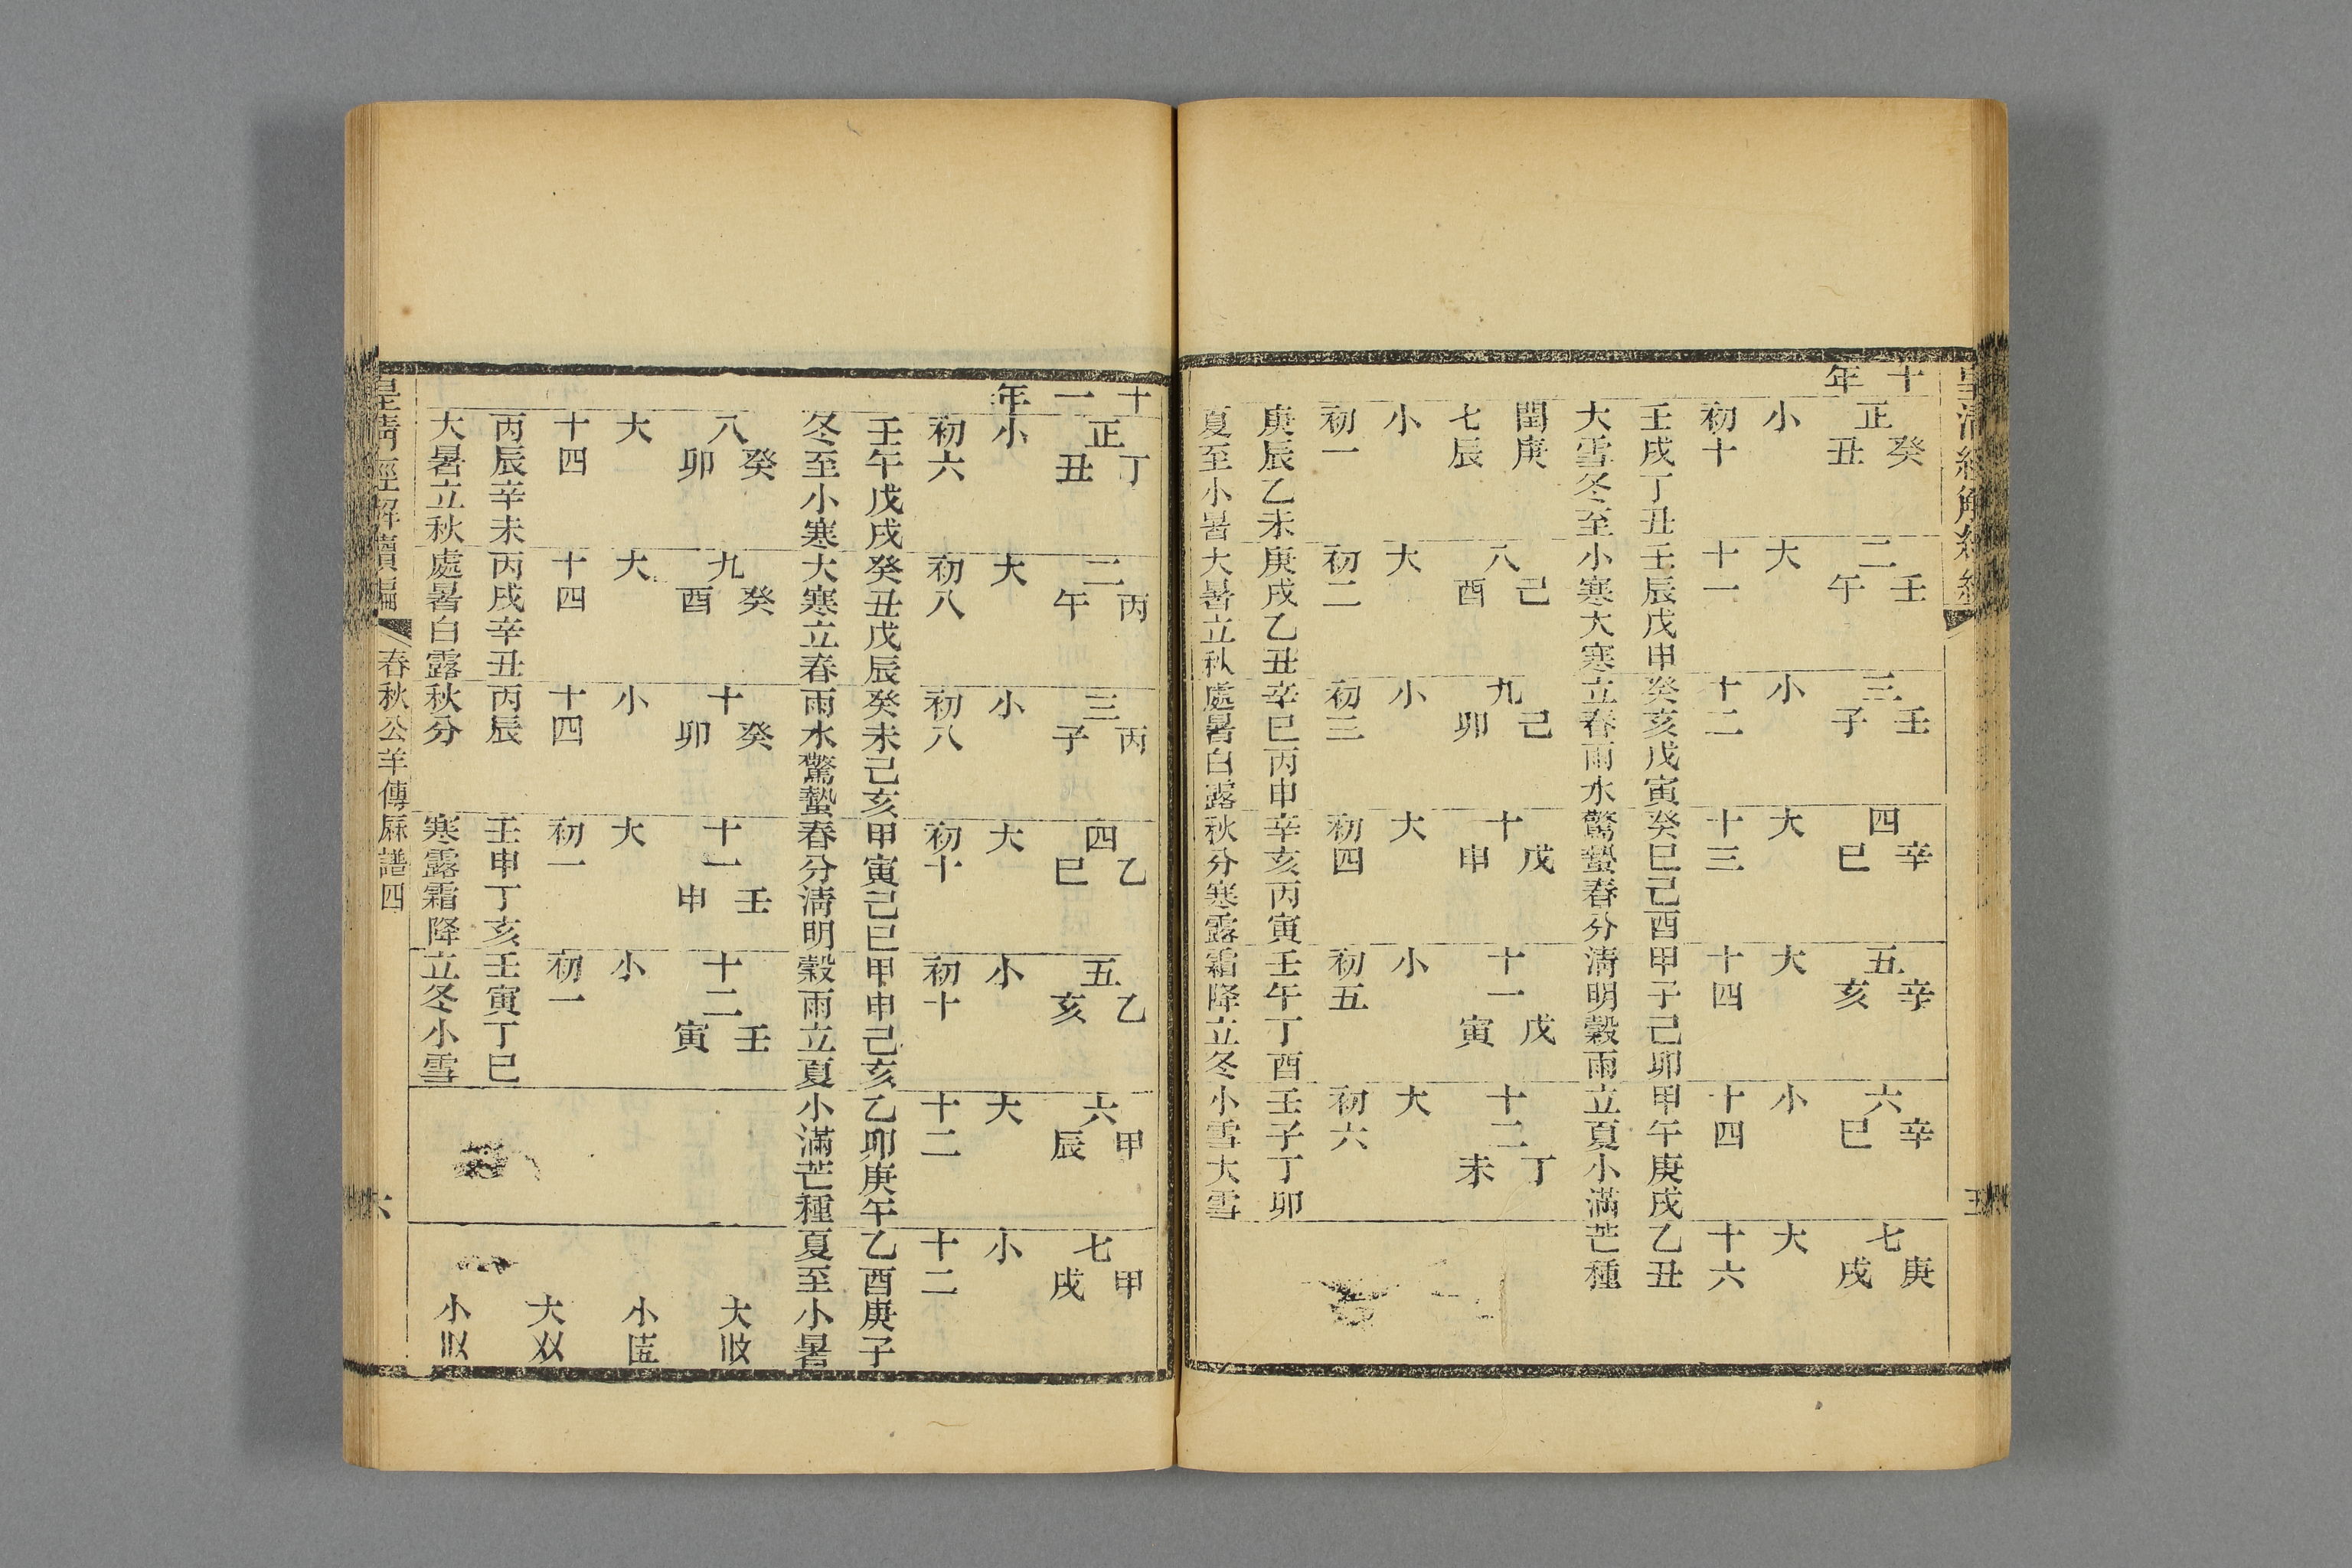 皇清經解續編
十年
正癸丑 二壬午 三壬子 四辛巳 五辛亥 六辛巳 七庚戌
小 大 小 大 大 小 大
初十 十一 十二 十三 十四 十四 十六
壬戌丁丑壬辰戊申癸亥戊寅癸巳己酉甲子己卯甲午庚戌乙丑
大雪冬至小寒大寒立春雨水驚蟄春分清明穀雨立夏小滿芒種
閏七庚辰 八己酉 九己卯 十戊申 十一戊寅 十二丁未
小 大 小 大 小 大
初一 初二 初三 初四 初五 初六
庚辰乙未庚戌乙丑辛巳丙申辛亥丙寅壬午丁酉壬子丁卯
夏至小暑大暑立秋處暑白露秋分寒露霜降立冬小雪大雪
十一年
正丁丑 二丙午 三丙子 四乙巳 五乙亥 六甲辰 七甲戌
小 大 小 大 小 大 小
初六 初八 初八 初十 初十 十二 十二
壬午戊戌癸丑戊辰癸未己亥甲寅己巳甲申己亥乙卯庚午乙酉庚子
冬至小寒大寒立春雨水驚蟄春分清明穀雨立夏小滿芒種夏至小暑
八癸卯 九癸酉 十癸卯 十一壬申 十二壬寅
大
大 大 小 大 小
小
十四 十四 十四 初一 初一
大
丙辰辛未丙戌辛丑丙辰 壬申丁亥壬寅丁巳
大暑立秋處暑白露秋分 寒露霜降立冬小雪
小
皇清經解續編 春秋公羊傳厤譜四 六